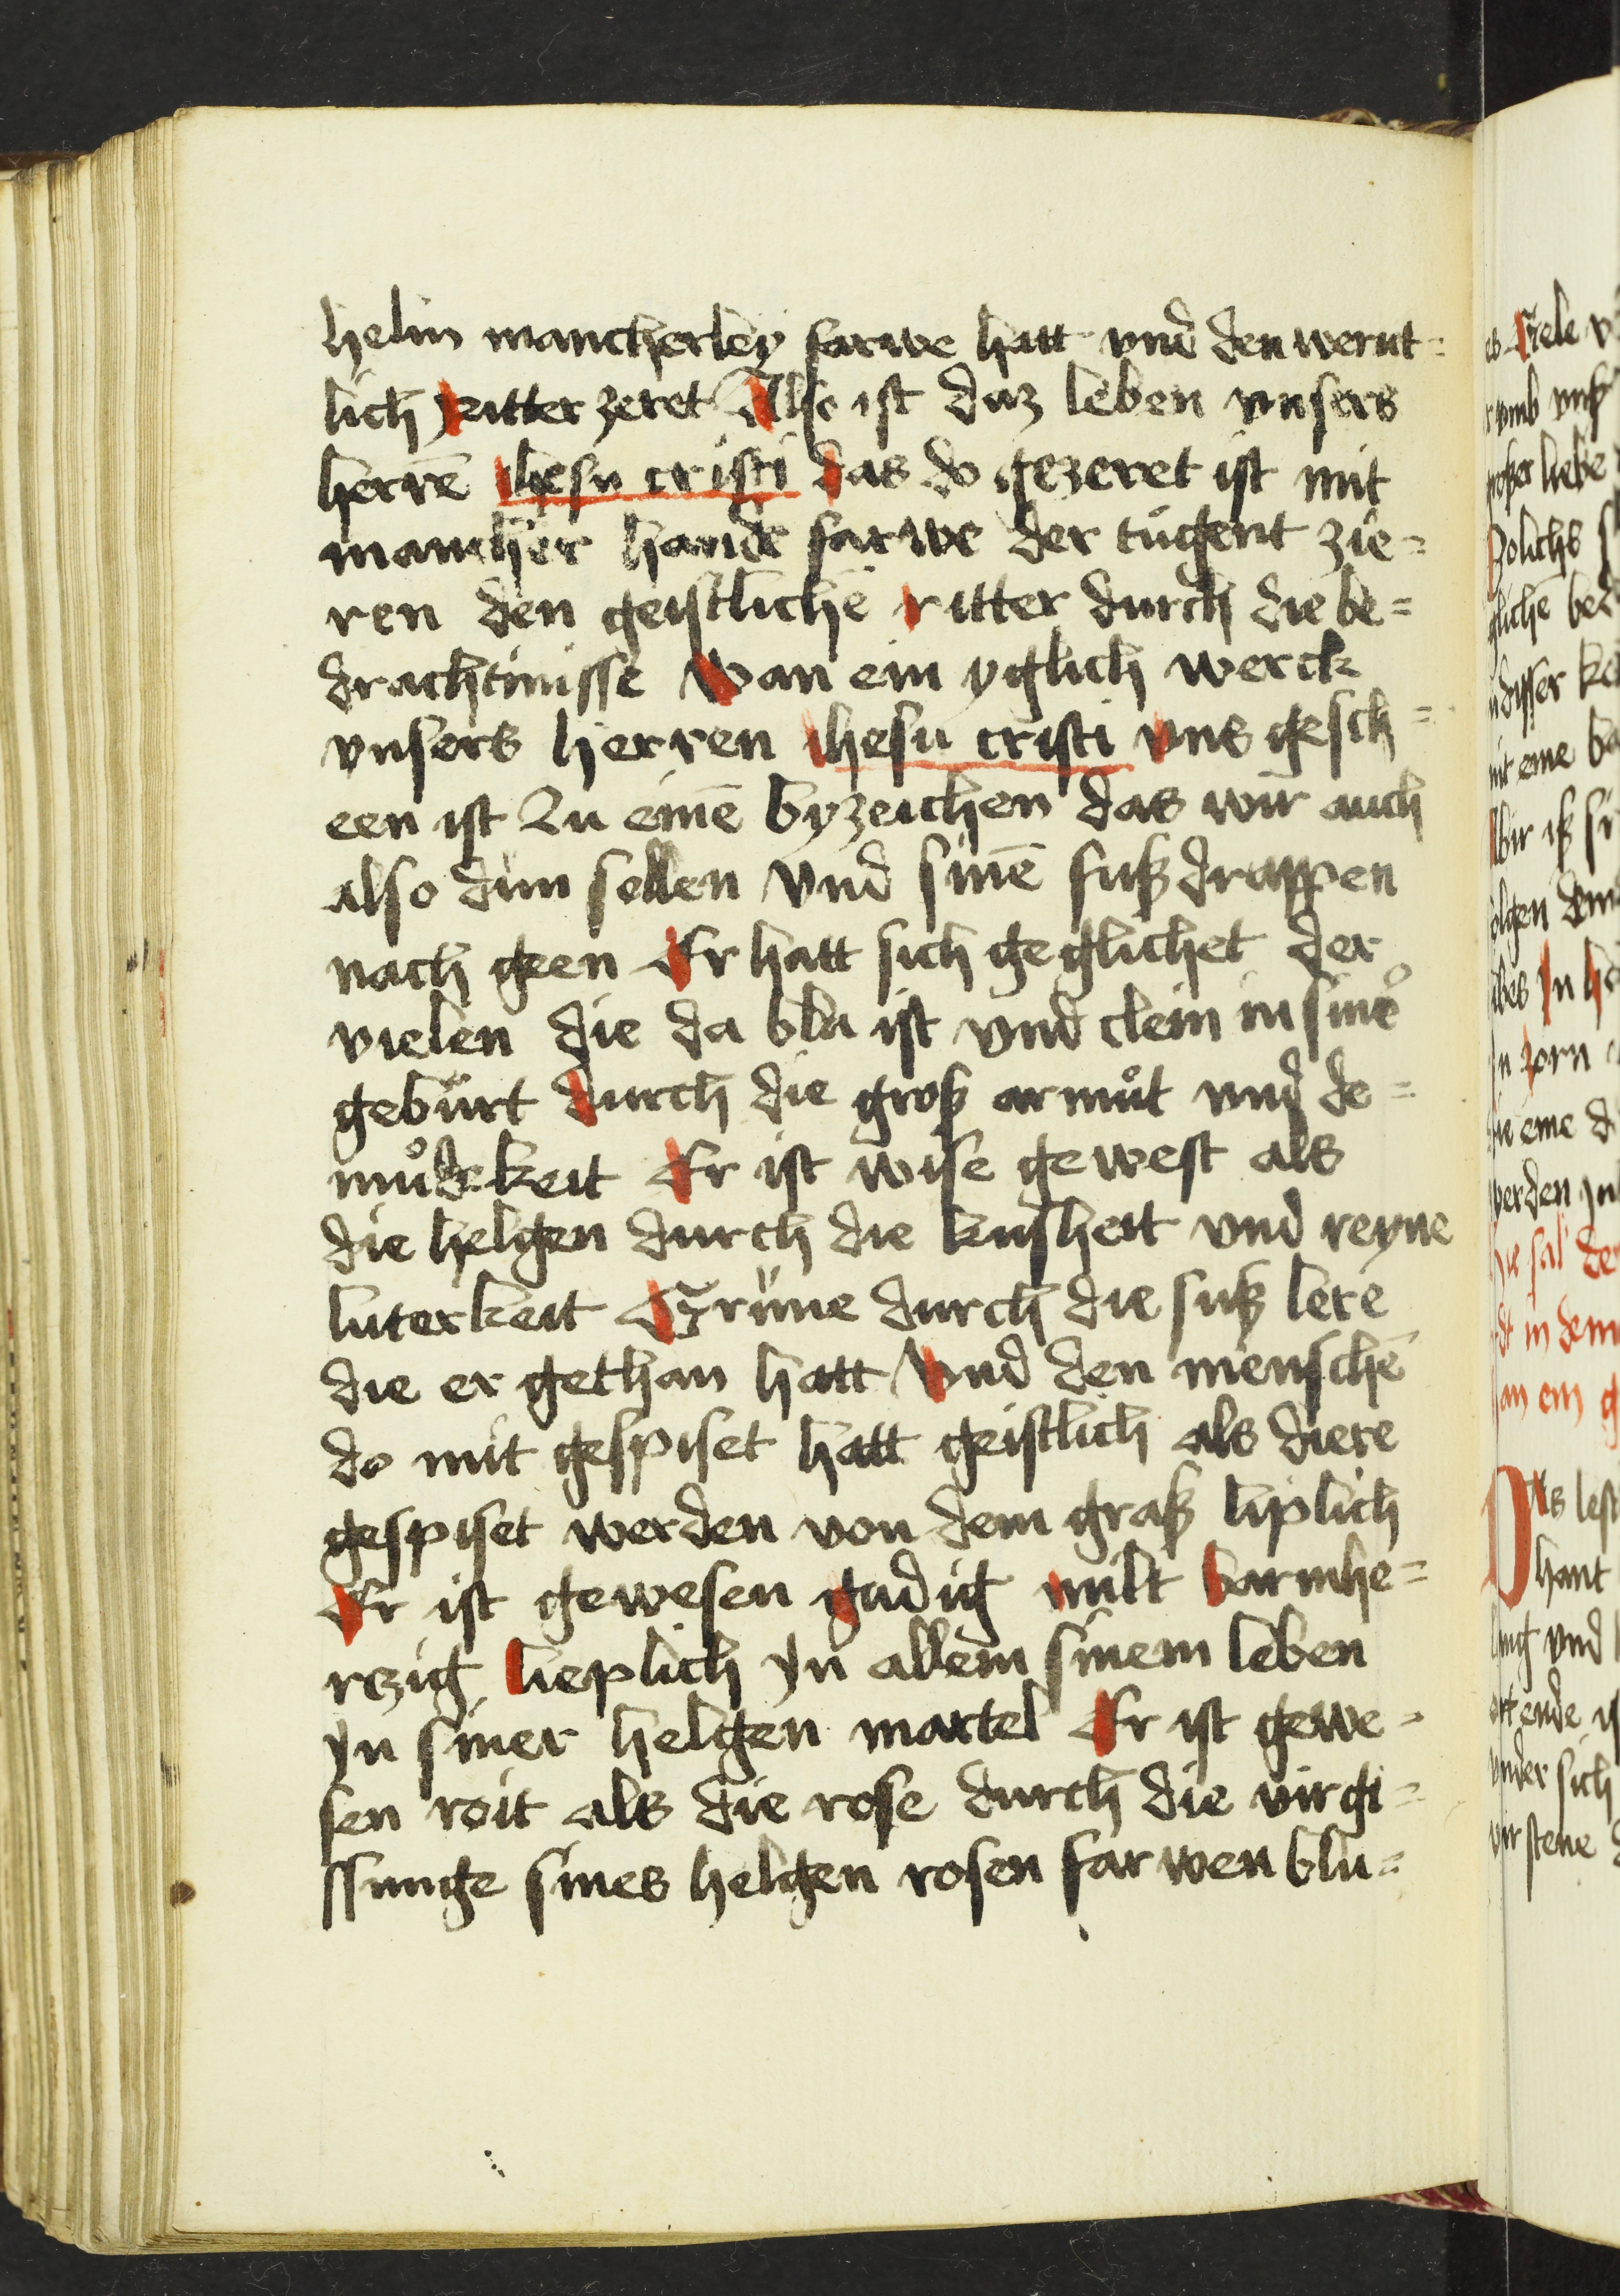 helm mancherley farwe hatt vnd den wernt=
lich Ritter zeret Also ist daz leben vnsers
herrē Ihesu cristi das do gezeret ist mit
mancher hande farwe der tugent zie=
ren den geistlichē ritter durch die be=
drachtnisse Wan ein yglich werck
vnsers herren Ihesu cristi vns gesch=
een ist Zu einē byzeichen das wir auch
also dun sollen Vnd sinē fußdrappen
nach geen Er hatt sich geglichet der
vielen die da bla ist vnd clein in siner
geburt durch die groß armůt vnd de=
můdekeit Er ist wise gewest als
die helgen durch die kusheit vnd reyne
luterkeit Grüne durch die suß lere
die er gethan hatt Vnd den menschē
do mit gespiset hatt geistlich als diere
gespiset werden von dem graß liplich
Er ist gewesen gadig milt barmhe=
rczig lieplich Jn allem sinem leben
Jn siner helgen martel Er ist gewe=
sen roit als die rose durch die virgi=
ssunge sines helgen rosen farwen blu=